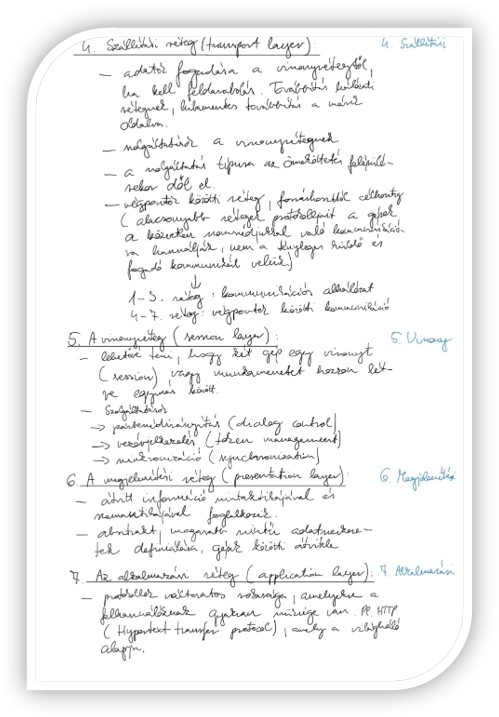 4. Szállítási réteg (transport layer): 4. Szállítási
– adatok fogadása a viszonyrétegtől,
ha kell feldarabolás. Továbbítás hálózati
rétegnek, hibamentes továbbítás a másik
oldalra.
– szolgáltatások a viszonyrétegnek
– a szolgáltatás típusa az összeköttetés felépülé-
sekor dől el.
– végpontok közötti réteg, forráshosttól célhostig
(alacsonyabb rétegek protokolljait a gépek
a közvetlen szomszédjukkal való kommunikáció-
ra használják, nem a tényleges küldő és
fogadó kommunikál velük)
↓
1-3. réteg: kommunikációs alhálózat
4-7. réteg: végpontok közötti kommunikáció
5. A viszonyréteg (session layer): 5. Viszony
– lehetővé teszi, hogy két gép egy viszonyt
(session) vagy munkamenetet hozzon lét-
re egymás között.
– Szolgáltatások
→ párbeszédirányítás (dialog control)
→ vezérjelkezelés (token management)
→ szinkronizáció (synchronization)
6. A megjelenítési réteg (presentation layer): 6. Megjelenítési
– átvitt információ szintaktikájával és
szemantikájával foglalkozik.
– absztrakt, magasabb szintű adatszerkeze-
tek definiálása, gépek közötti átvitele
7. Az alkalmazási réteg (application layer): 7. Alkalmazási
– protokollok változatos sokasága, amelyekre a
felhasználóknak gyakran szüksége van. Pl. HTTP
(Hypertext transfer protocol), amely a világháló
alapja.